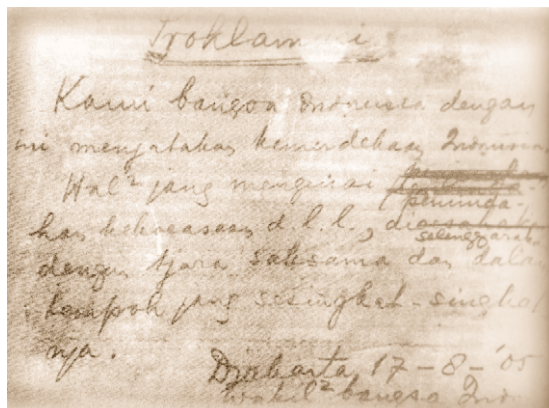 Proklamasi
Kami bangsa Indonesia dengan
ini menjatakan kemerdekaan Indonesia
Hal² jang mengenai
peminda-
han kekoeasaan d.l.l., 
selenggarakan
dengan tjara saksama dan dalam
tempoh jang sesingkat-singkat
nja.
Djakarta 17-8-'05
Wakil² bangsa Indo